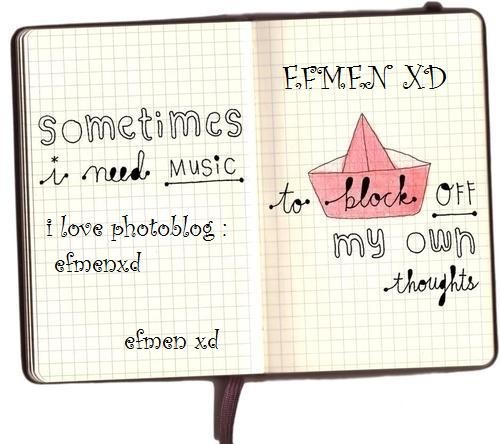 sometimes
i need MUSIC
i love photoblog :
efmenxd
efmen xd
EFMEN XD
to block OFF
my own
thoughts